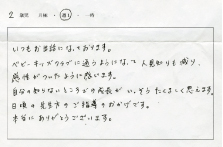 2 歳児 月極・週1・一時
いつもお世話になっております。
ベビーキッズクラブに通うようになって人見知りも減り、
感情がついたように感じます。
自分の知らないところでの成長が いぞう たくましく思えます。
日頃の先生方のご指導のおかげです。
本当にありがとうございます。